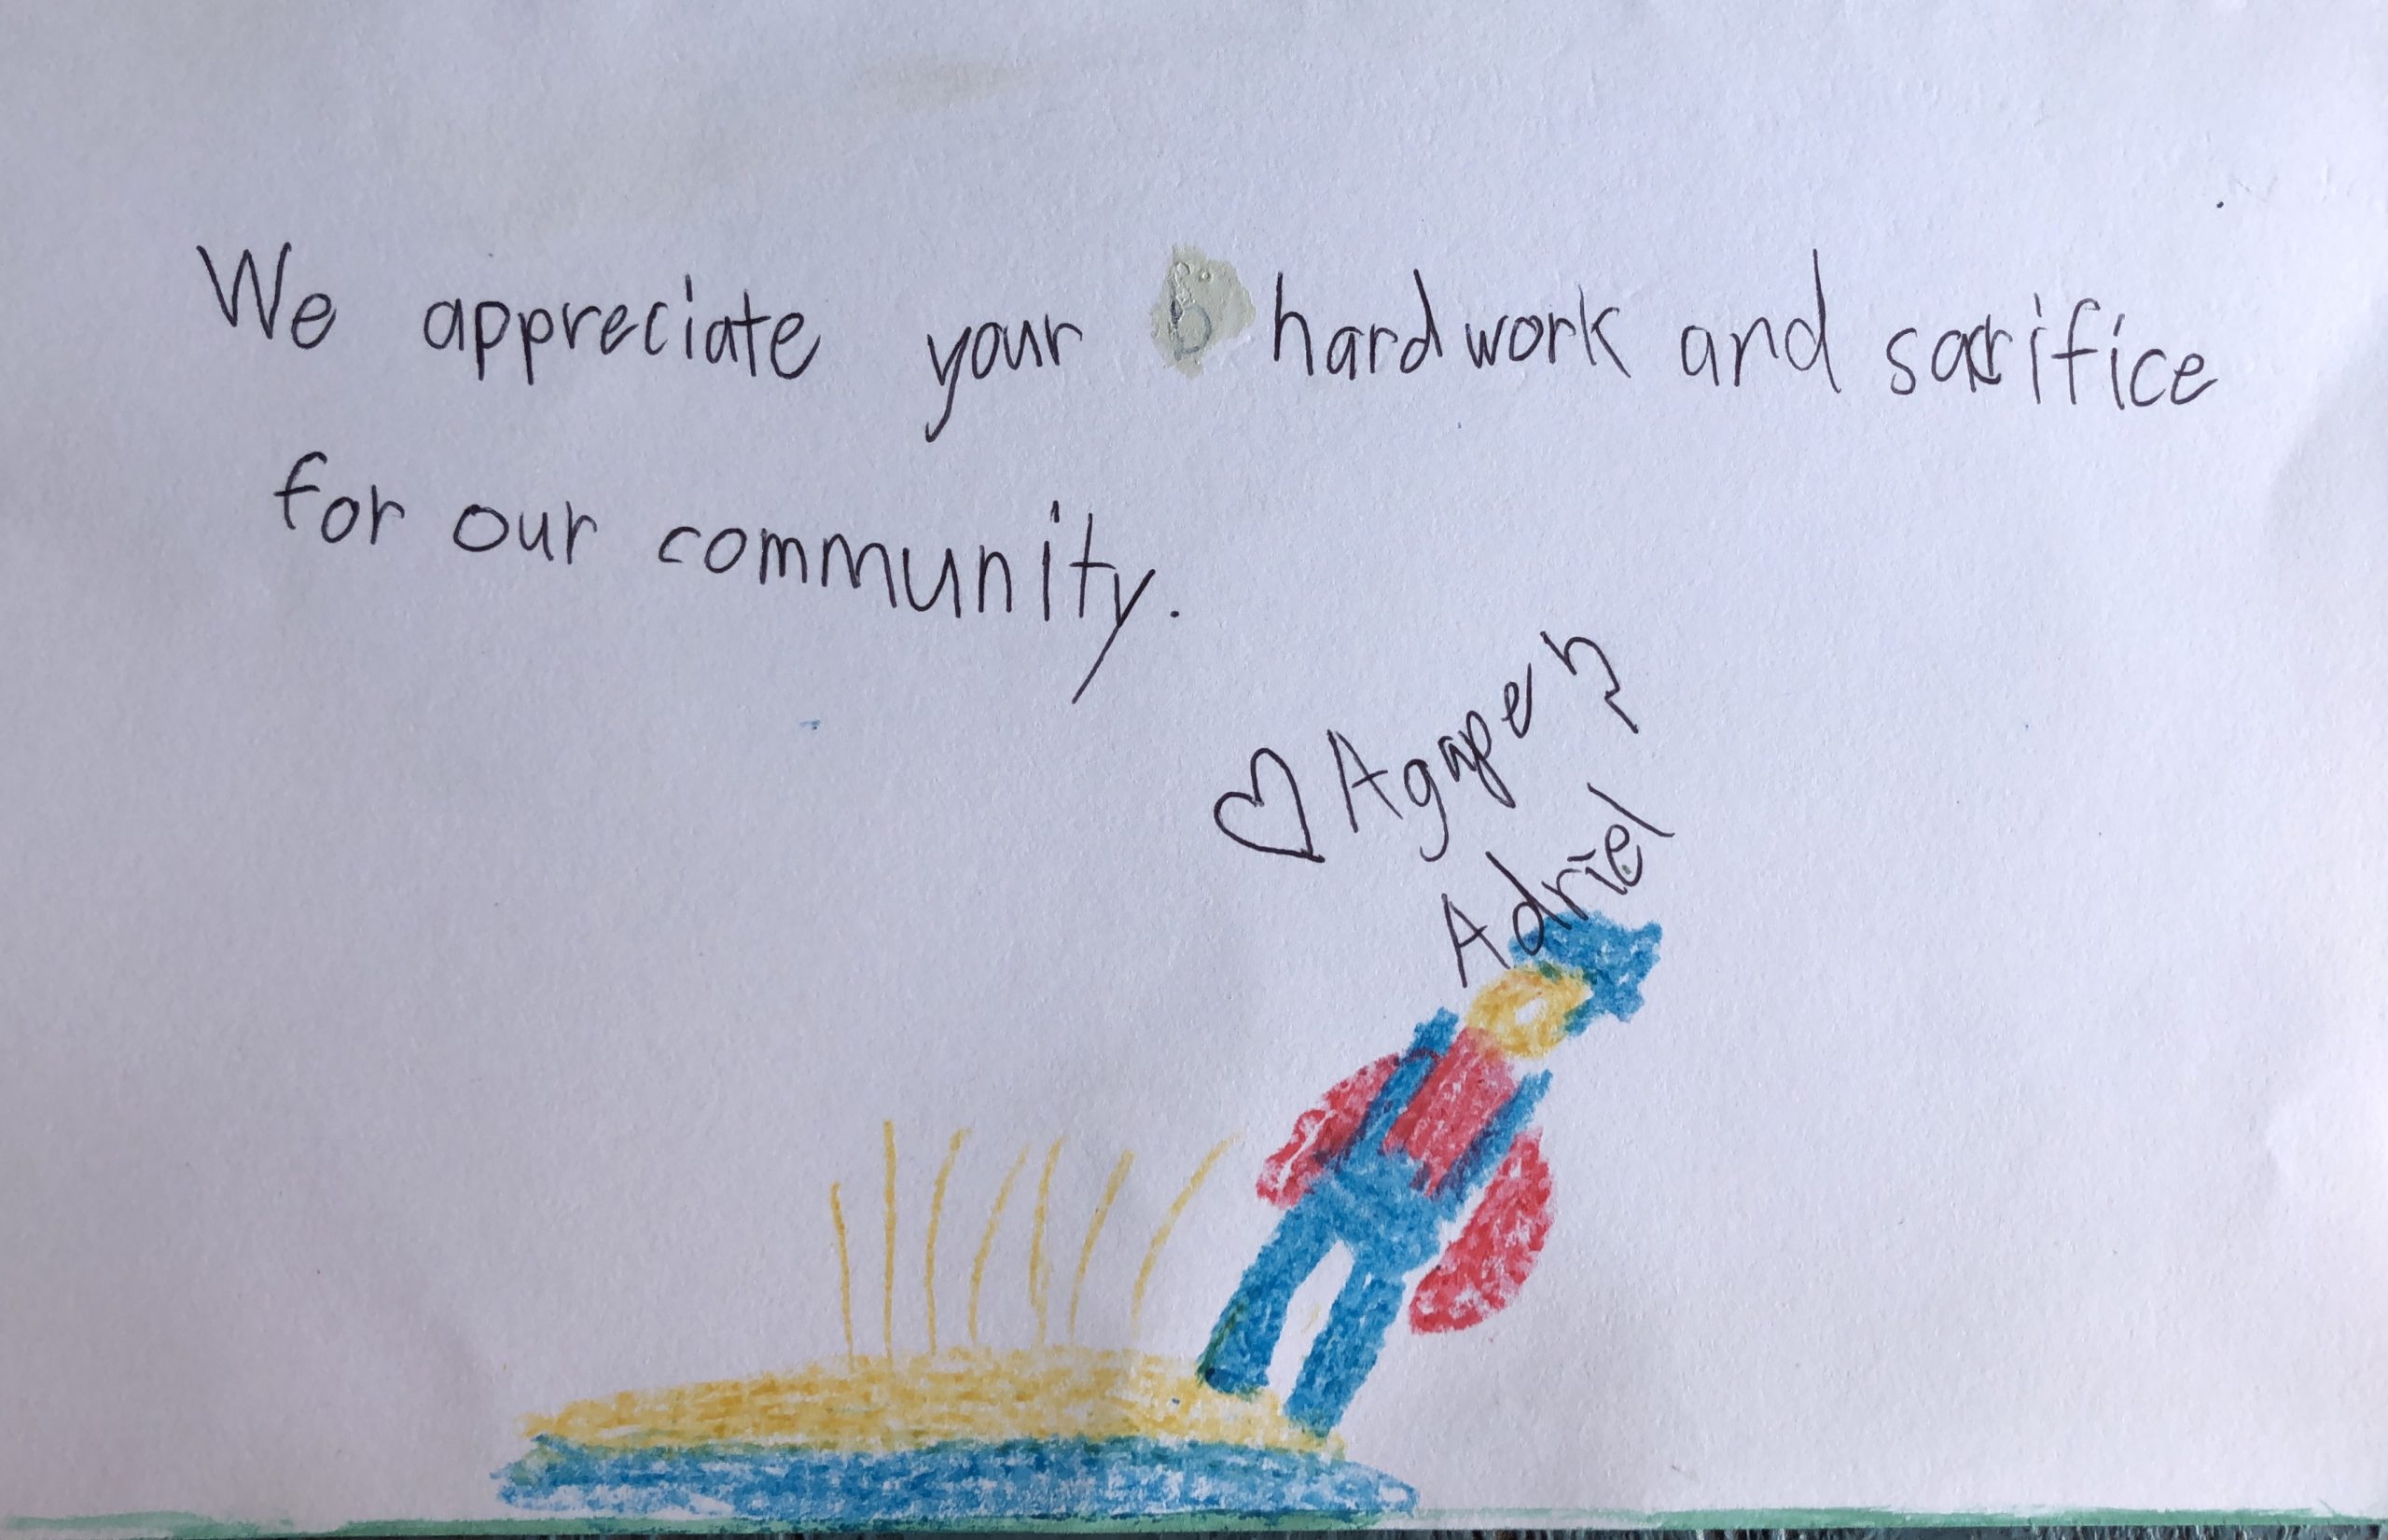 We appreciate your hardwork and sacrifice
for our community.
♡ Agape
Adriel